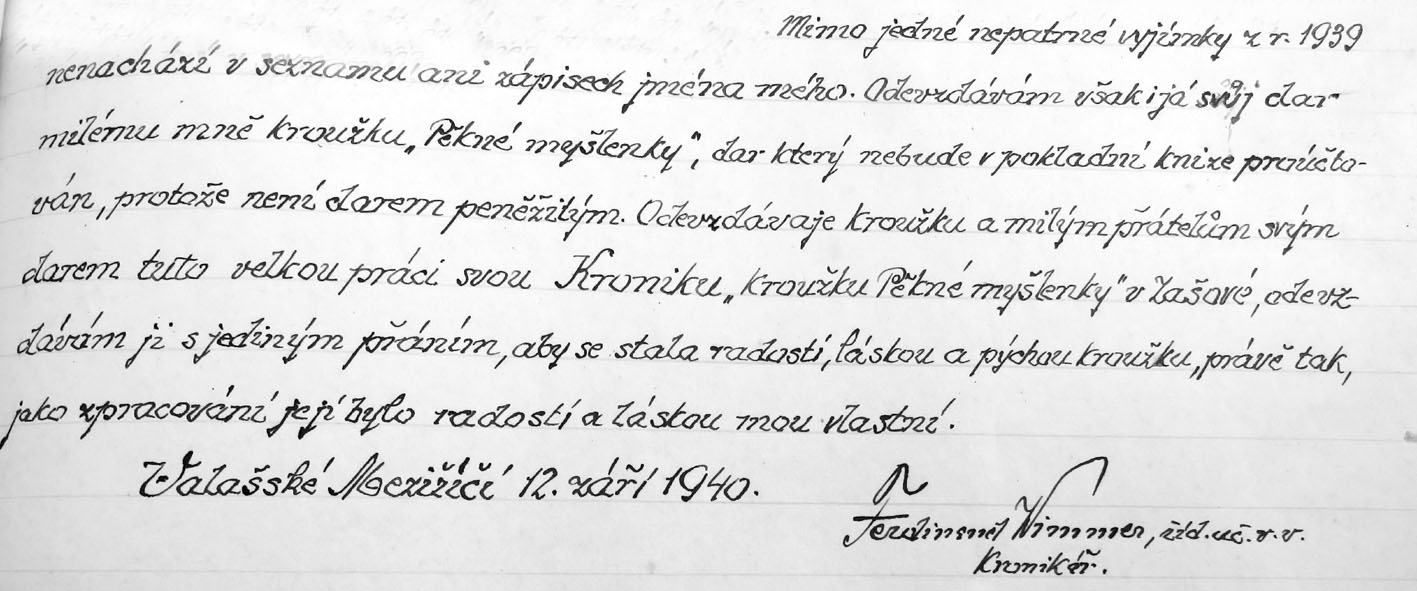 Mimo jedné nepatrné vyjímky z r. 1939
nenachází v seznamu ani zápisech jména mého. Odevzdávám však i já svůj dar
milému mně kroužku „Pěkné myšlenky", dar který nebude v pokladní knize proúčto-
ván, protože není darem peněžitým. Odevzdávaje kroužku a milým přátelům svým
darem tuto velkou práci svou Kroniku „Kroužku Pěkné myšlenky" v Zašové, odevz-
dávám ji s jediným přáním, aby se stala radostí, láskou a pýchou kroužku, právě tak,
jako zpracování její bylo radostí a láskou mou vlastní.
Valašské Meziříčí 12. září 1940.
Ferdinand Wimmer, říd. uč. v. v.
Kronikář.